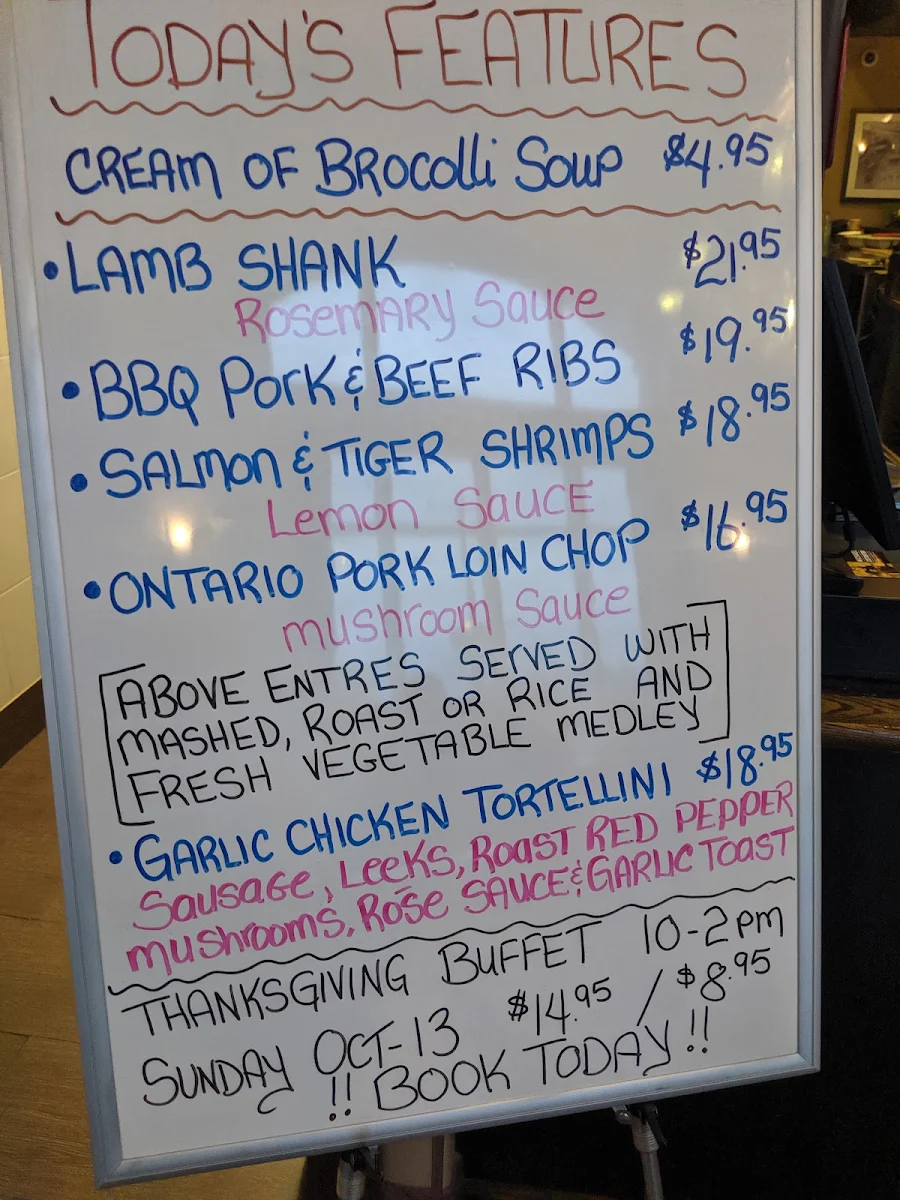 TODAY'S FEATURES
CREAM OF BROCOLLI SOUP $4.95
• LAMB SHANK $21.95
Rosemary Sauce
• BBQ PORK & BEEF RIBS $19.95
• SALMON & TIGER SHRIMPS $18.95
Lemon SAUCE
• ONTARIO PORK LOIN CHOP $16.95
mushroom Sauce
[ABOVE ENTRES SERVED WITH
MASHED, ROAST OR RICE AND
FRESH VEGETABLE MEDLEY]
• GARLIC CHICKEN TORTELLINI $18.95
Sausage, Leeks, Roast RED PEPPER
mushrooms, Rosé SAUCE & GARLIC TOAST
THANKSGIVING BUFFET 10-2pm
SUNDAY OCT-13 $14.95 / $8.95
!! BOOK TODAY!!